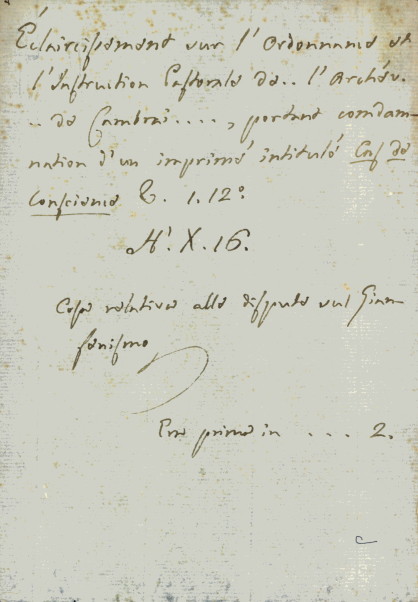 Éclaircissement sur l'Ordonnance et
l'Instruction Pastorale de.. l'Archév.
.. de Cambrai...., portant condam-
nation d'un imprimé intitulé Cas de
Conscience &. 1. 12°.
H. X. 16.
Cose relative alle dispute sul Gian-
senismo
Era prima in ... 2.